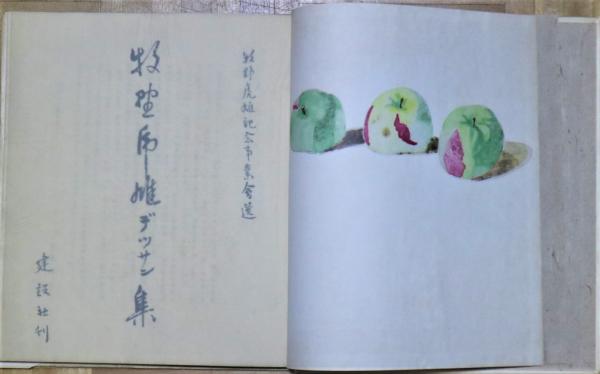 牧野虎雄記念事業会選
牧野虎雄デッサン集
建設社刊